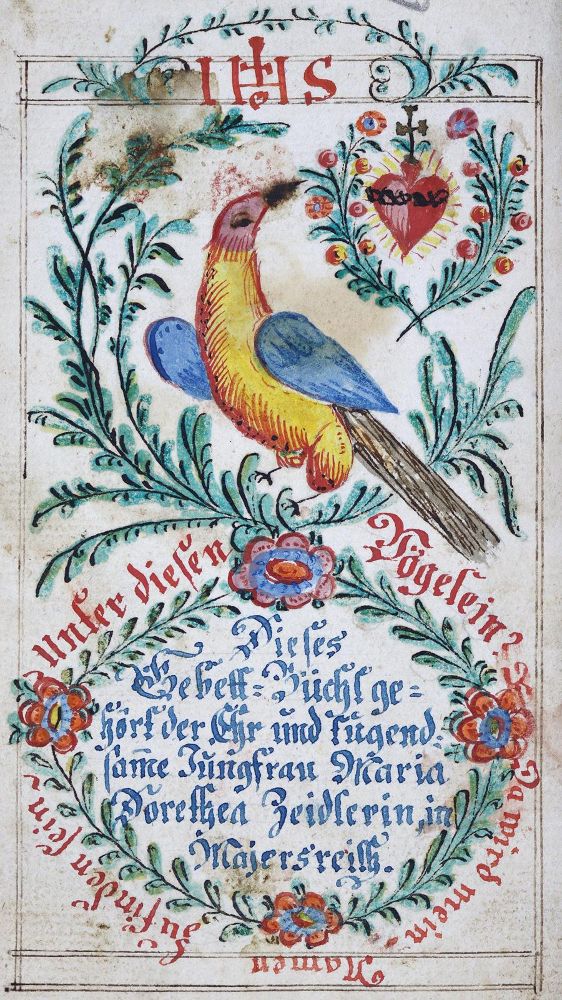 IHS
Unter diesen Vögelein?
Da wird mein
Namen
zu finden sein
Dieses
Gebett=Büchl ge=
hört der Ehr und tugend=
sam̅e Jungfrau Maria
Dorethea Zeidlerin, in
Majersreith.